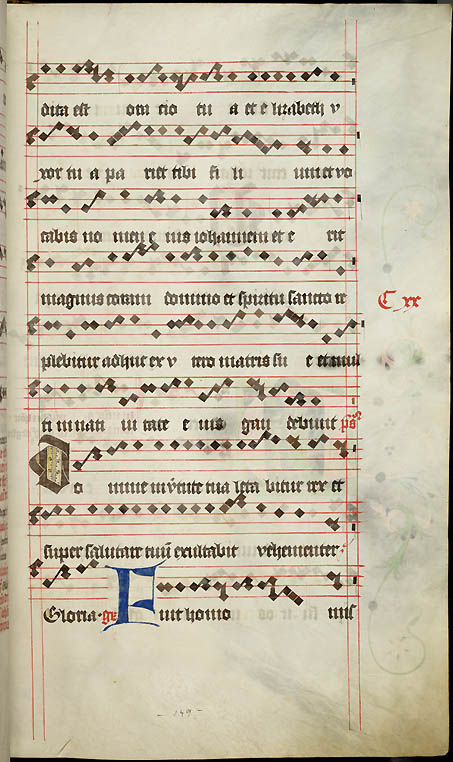 dita est oratio tua et elizabeth v
xor tua pariet tibi filium et vo
cabis nomen eius iohannem et erit
magnus coram domino et spiritu sancto re
C xx
plebitur adhuc ex vtero matris sue et mul
ti in nati uitate eius gaudebunt ps
Domine in virtute tua letabitur rex et
super salutare tuum exultabit vehementer
Gloria Fuit homo mis
-149-